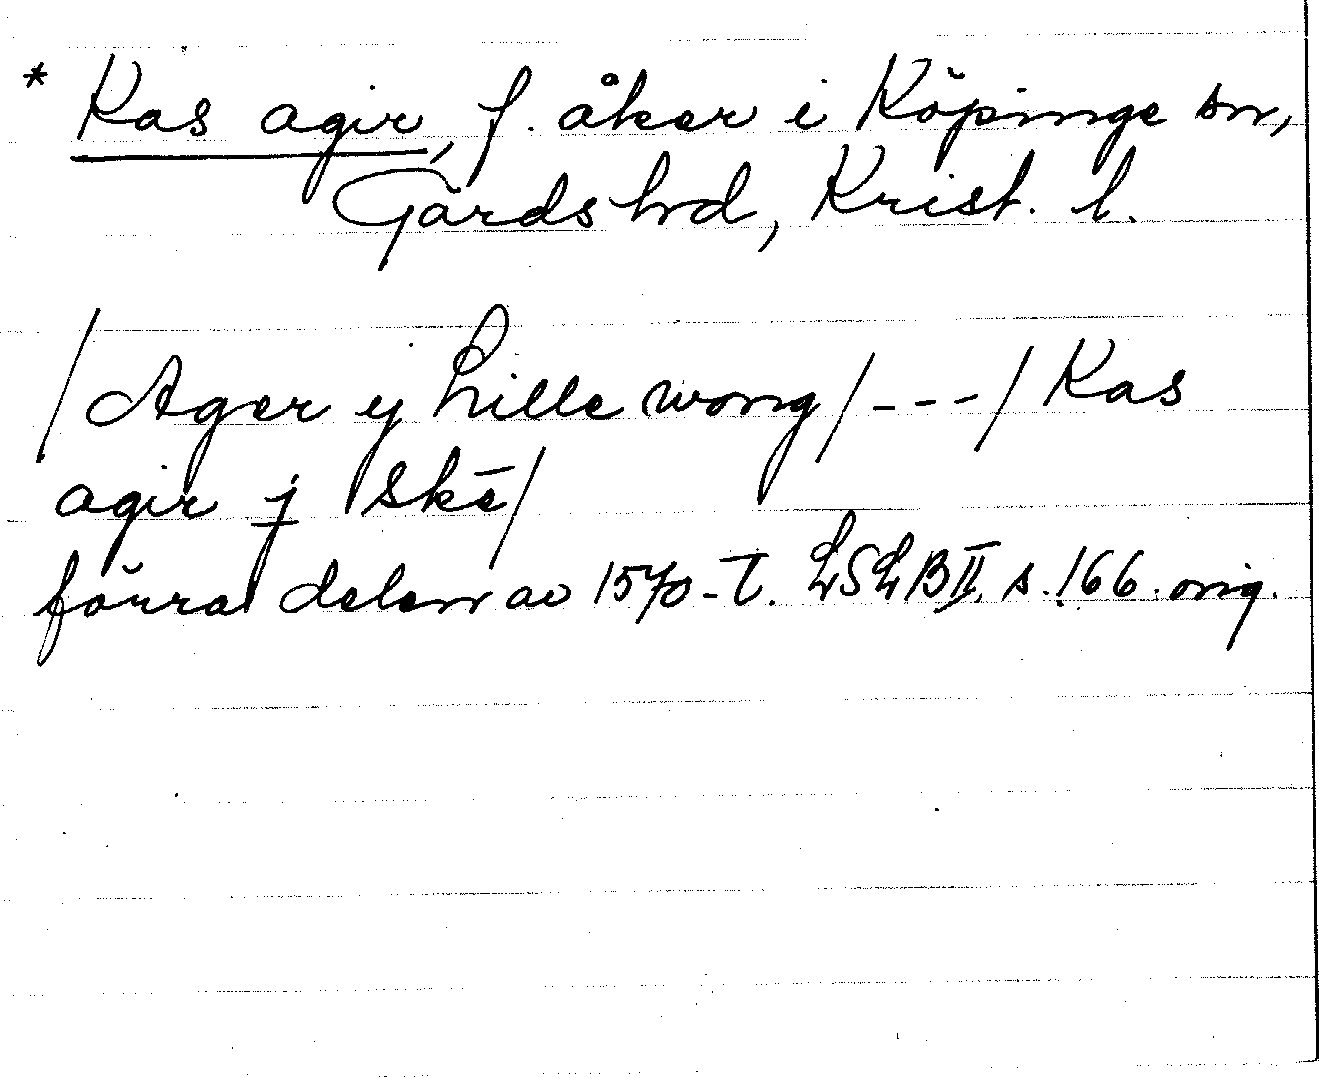 * Kas agir, f. åker i Köpinge sn,
Gärds hd, Krist. l.
/Ager y Lille wong/---/Kas
agir j skē/
förra delen av 1570-t. LSLB II. s. 166. orig.